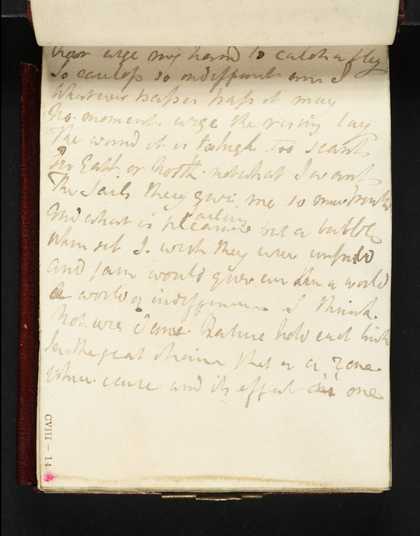 nor urge my hand to catch a fly
So careless so indifferent am I
Whatever passes pass it may
No moments urge the rising lay
The wind it is too high too scant
Too East or North not what I want
The Sails they give me so much trouble
And what is sailing but a bubble
When set I wish they were unfurld
and fain would give em than a world
A world of indifference I think.
Nature hold each link
In the great chain that is a Zone
When cause and its effect are one
CVIII – 14